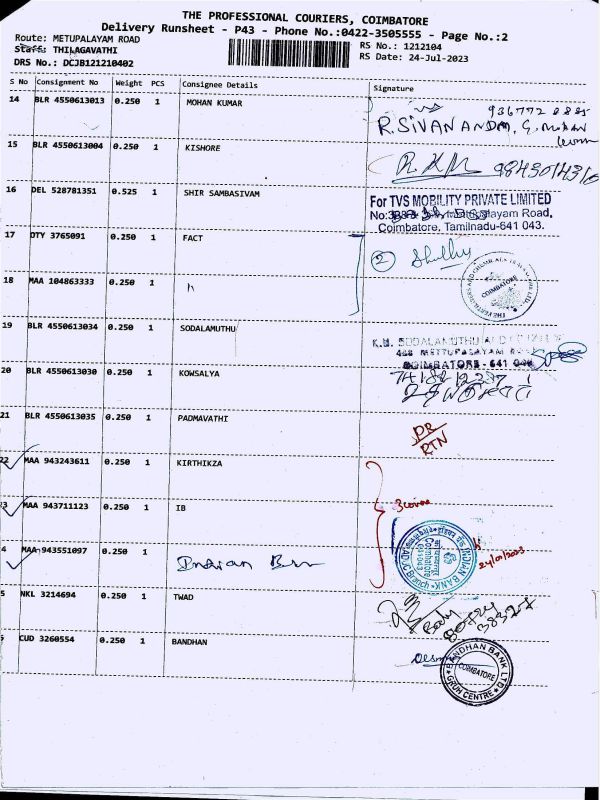 THE PROFESSIONAL COURIERS, COIMBATORE
Delivery Runsheet - P43 - Phone No.:0422-3505555 - Page No.:2
Route: METUPALAYAM ROAD
Staff: THILAGAVATHI
DRS No.: DCJB121210402
RS No.: 1212104
RS Date: 24-Jul-2023
S No Consignment No Weight PCS Consignee Details Signature
14 BLR 4550613013 0.250 1 MOHAN KUMAR
R.SIVANANDAM, G. MOHAN
15 BLR 4550613004 0.250 1 KISHORE
9843014310
16 DEL 528781351 0.525 1 SHIR SAMBASIVAM
For TVS MOBILITY PRIVATE LIMITED
Coimbatore, Tamilnadu-641 043.
17 DTY 3765091 0.250 1 FACT
2
COIMBATORE
18 MAA 104863333 0.250 1
19 BLR 4550613034 0.250 1 SODALAMUTHU
K.M. SODALAMUTHU AND CO
METTUPALAYAM ROAD
COIMBATORE - 641
20 BLR 4550613030 0.250 1 KOWSALYA
21 BLR 4550613035 0.250 1 PADMAVATHI
DR
RTN
22 MAA 943243611 0.250 1 KIRTHIKZA
3 MAA 943711123 0.250 1 IB
INDIAN BANK
Coimbatore
641043
Branch
4 MAA 943551097 0.250 1 Indian
5 NKL 3214694 0.250 1 TWAD
CUD 3260554 0.250 1 BANDHAN
BANDHAN BANK LTD
COIMBATORE
GRUH CENTRE